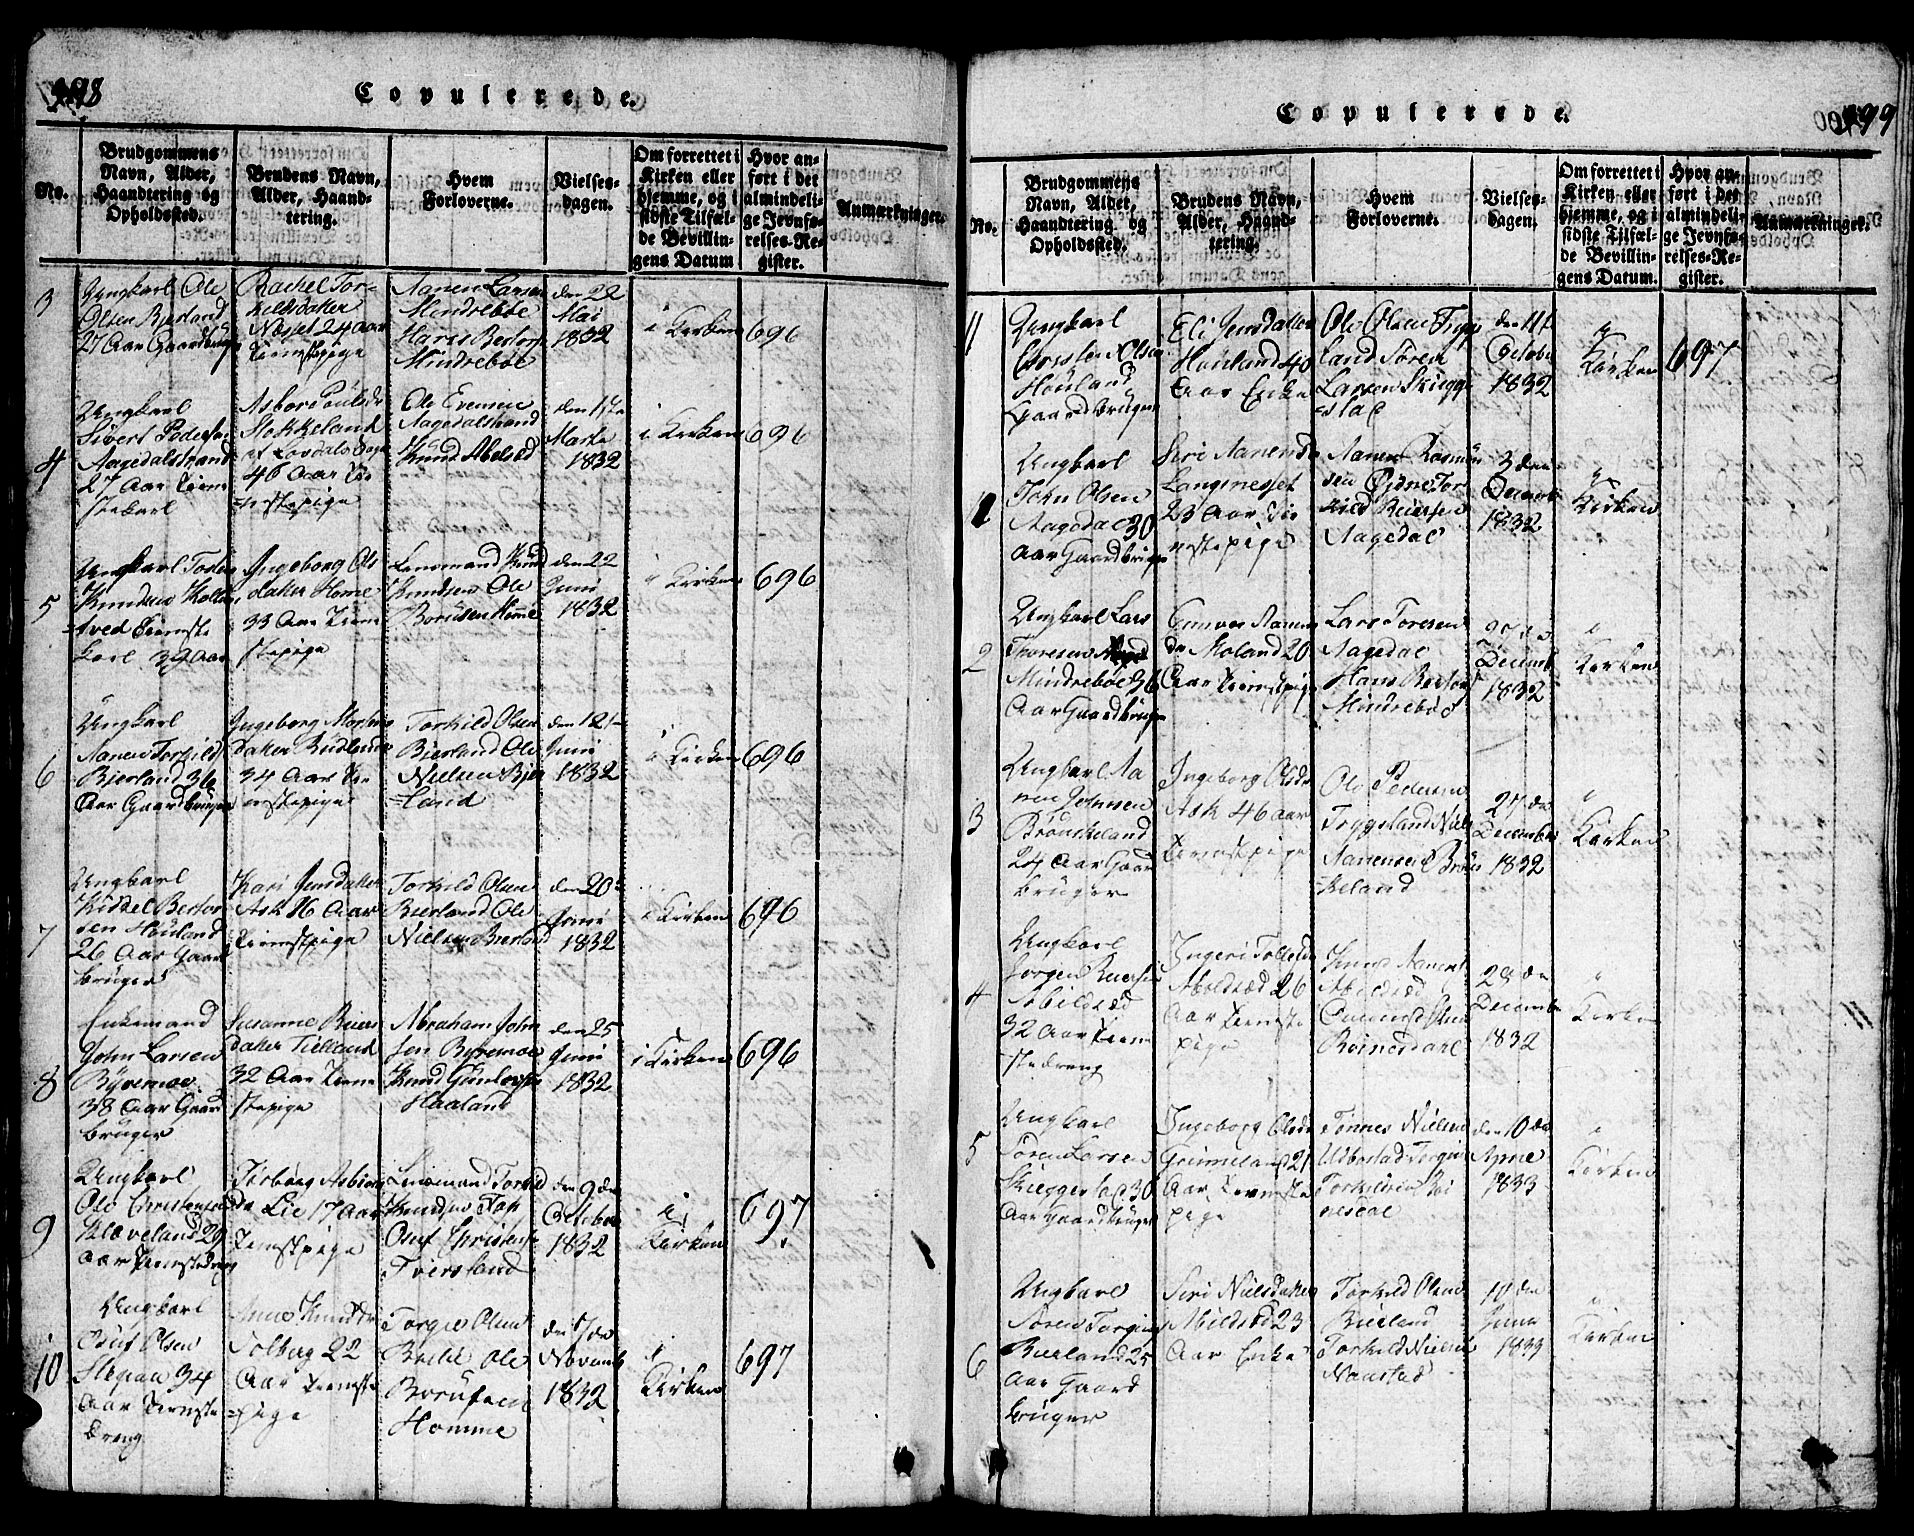 298
Copulerede.
No.
Brudgommens
Navn, Alder,
Haandtering og
Opholdssted.
Brudens Navn,
Alder, Haand-
tering.
Hvem
Forloverne.
Vielses-
dagen.
Om forrettet i
Kirken eller
hjemme, og i
sidste Tilfæl-
de Bevillin-
gens Datum
Hvor an-
ført i det
almindeli-
ge Jevnfø-
relses-Re-
gister.
Anmærkninger.
3
Ungkarl Ole
Olsen Bierland
27 Aar Gaardbruger
Rachel Tor-
kildsdatter
Næset 24 Aar
Tienistepige
Aanen Larsen
Mindreböe
Hans Bentsen
Mindreböe
den 22
Mai
1832
i Kirken
696
4
Ungkarl
Sivert Pedersen
Aagedalstrand
27 Aar Tieni
stekarl
Stokkeland
46 Aar Tie
=nistepige
Ole Evensen
Aagedalstrand
Knud Abelsæd
den 1ste
Marts
1832
i Kirken
696
5
Knudsen
=tved Tieniste
karl 39 Aar
Ingeborg Ols
datter Home
33 Aar Tieni
stepige
Lensmand Knud
Knudsen Ole
Borufsen Home
den 22
Juni
1832
i Kirken
696
6
Ungkarl
Aanen Torkild
Bierland 36
Aar Gaardbruger
Ingeborg Mortens
datter
34 Aar Tie
nistepige
Torkild Olsen
Bierland Ole
Nielsen Bier
=land
den 12te
Juni
1832
i Kirken
696
7
Ungkarl
Kittel Bentsen
sen Houland
26 Aar Gaard
bruger
Kari Jensdatter
Ask 16 Aar
Tienistpige
Torkild Olsen
Bierland Ole
Nielsen Bierland
den 20de
Juni
1832
i Kirken
696
8
Enkemand
John Larsen
Byremoe
38 Aar Gaard
bruger
Susanne Reiers
datter
32 Aar Tieni
stepige
Abraham John
sen Byremoe
Knud Gunlevsen
Haaland
den 25
Juni
1832
i Kirken
696
9
Ungkarl
Ole Christensen
Klæveland 29
Aar Tienistedreng
Torborg Asbiørns
da Lie 17 Aar
Tienistpige
Lensmand Torkild
Knudsen Foss
Oluf Christense
Tviersland
den 9de
October
1832
i
Kirken
697
10
Ungkarl
Oluf Olsen
34
Aar Tieniste
dreng
Anne Knudsdr
Solberg 22
Aar Tieniste
=pige
Torgie Olsen
Ole
Borufsen
Homme
den 7de
Novemb
1832
i
Kirken
697
299
Copulerede.
No.
Brudgommens
Navn, Alder,
Haandtering og
Opholdssted.
Brudens Navn,
Alder, Haand-
tering.
Hvem
Forloverne.
Vielses-
dagen.
Om forrettet i
Kirken eller
hjemme, og i
sidste Tilfæl-
de Bevillin-
gens Datum.
Hvor an-
ført i det
almindeli-
ge Jevnfø-
relses-Re-
gister.
Anmærkninger.
11
Ungkarl
Christen Olsen
Houland
Gaardbruger
Eli Jensdatter
Houland 40
Aar Enke
Ole Olsen Tryg
land Søren
Larsen Skiegge
=stad
den 11te
October
1832
"
Kirken
697
1
Ungkarl
John Olsen
Aagedal 30
Aar Gaardbruger
Siri Aanensd
Langnesset
23 Aar Tie
nistepige
Aanen Rasmus
sen Øidne Tor
kild Reiersen
Aagedal
3die
Decemb
1832
"
Kirken
2
Ungkarl Lars
Thoresen
Mindreböe 36
Aar Gaardbruger
Gunvor Aanens
da Moland 20
Aar Tienistpige
Lars Toresen
Aagedal
Hans Bentsen
Mindreböe
27de
Decemb
1832
"
Kirken
3
Ungkarl Aa
nen Johnsen
Brönskeland
24 Aar Gaard
bruger
Ingeborg Olsdr
Ask 46 Aar
Tienistpige
Ole Pedersen
Trygsland Niels
Aanensen Bröns
=keland
27de
December
1832
"
Kirken
4
Ungkarl
Jørgen Reiersen
Abildsæd
32 Aar Tieni
stedreng
Ingeri
Abeldsæd 26
Aar Tieniste
pige
Knud Aanens
Abildsæd
Omund
Roinesdal
23de
Decemb
1832
"
Kirken
5
Ungkarl
Sören Larsen
Skieggestad 30
Aar Gaardbruger
Ingeborg Olsda
Grimeland 21
Aar Tieniste
pige
Tönnes Nielsen
Udberstad Torgius
Torkildsen Roi
nesdal
den 10de
Aprie
1833
"
Kirken
6
Ungkarl
Sören Torgius
Bierland 25
Aar Gaard
bruger
Siri Nielsdatter
Abildsæd 23
Aar Enke
Torkild Olsen
Bierland
Torkild Nielsen
Naustad
10de
Juni
1833
"
Kirken